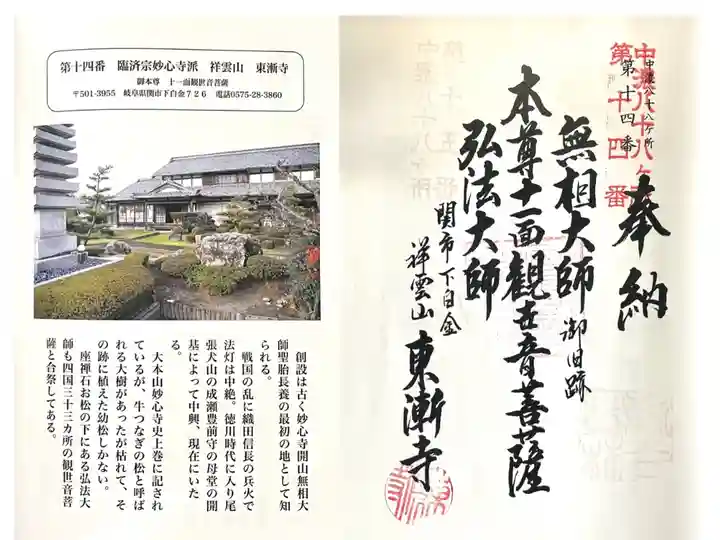 第十四番 臨済宗妙心寺派 祥雲山 東漸寺
御本尊 十一面観世音菩薩
〒501-3955 岐阜県関市下白金726 電話0575-28-3860
創設は古く妙心寺開山無相大
師聖胎長養の最初の地として知
られる。
戦国の乱に織田信長の兵火で
法灯は中絶。徳川時代に入り尾
張犬山の成瀬豊前守の母堂の開
基によって中興、現在にいた
る。
大本山妙心寺史上巻に記され
ているが、牛つなぎの松と呼ば
れる大樹があったが枯れて、そ
の跡に植えた幼松しかない。
座禅石お松の下にある弘法大
師も四国三十三カ所の観世音菩
薩と合祭してある。
中濃八十八ヶ所
第十四番
中濃八十八ヶ所
第十四番
奉納
無相大師 御旧跡
本尊十一面観世音菩薩
弘法大師
関市下白金
祥雲山 東漸寺